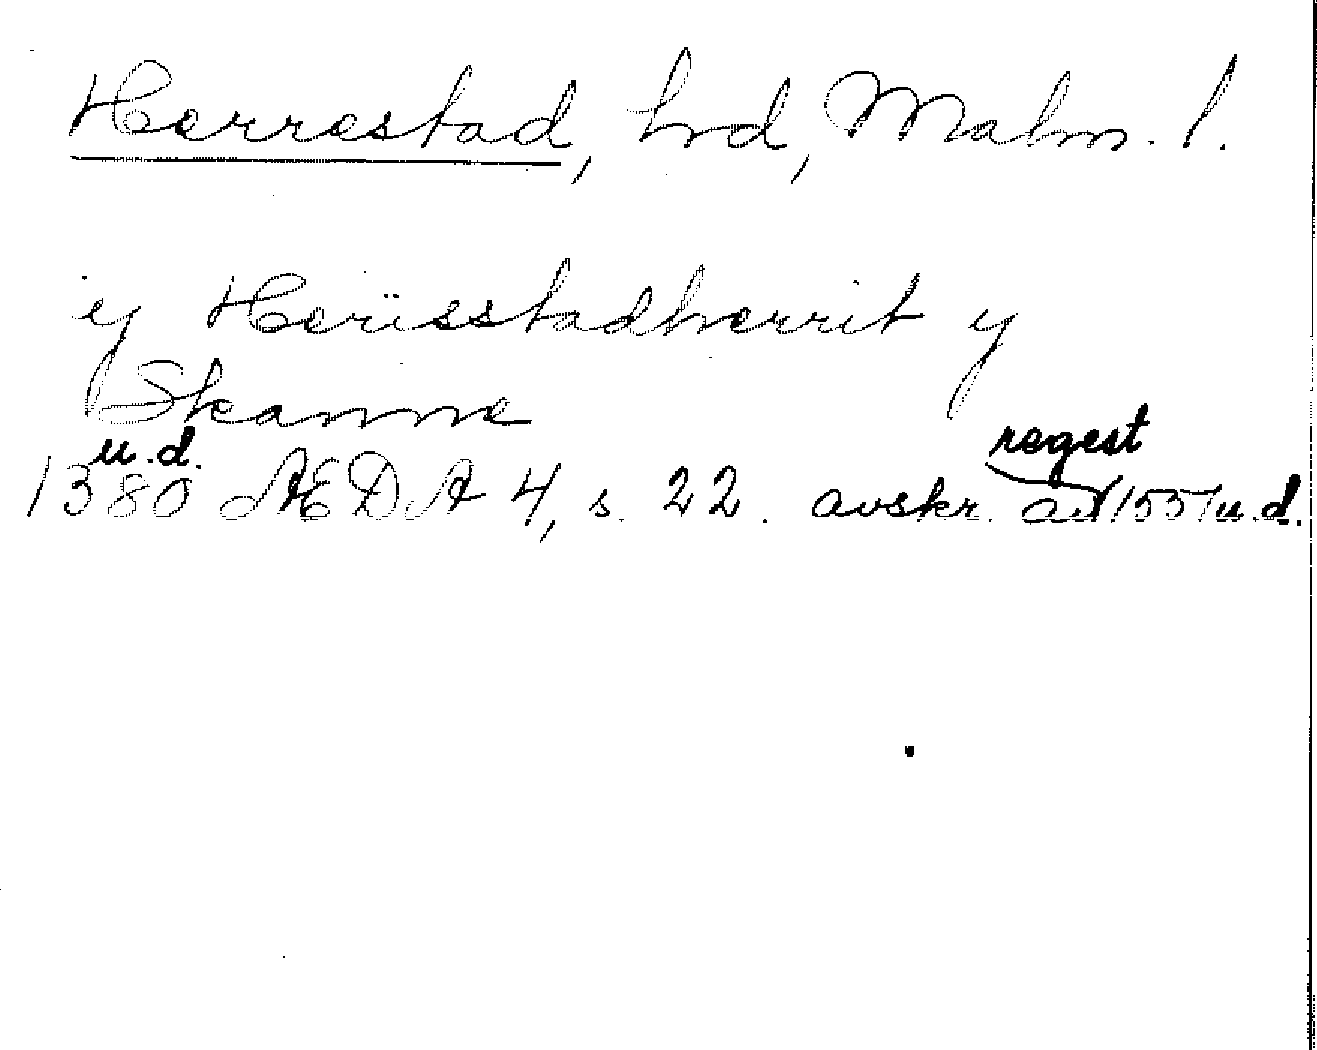 Herrestad, hrd, Malm. l.
ÿ Herüsstadherrit y
Skanne
u.d. regest
1380 ÆDA 4, s. 22. avskr. av 1551 u.d.